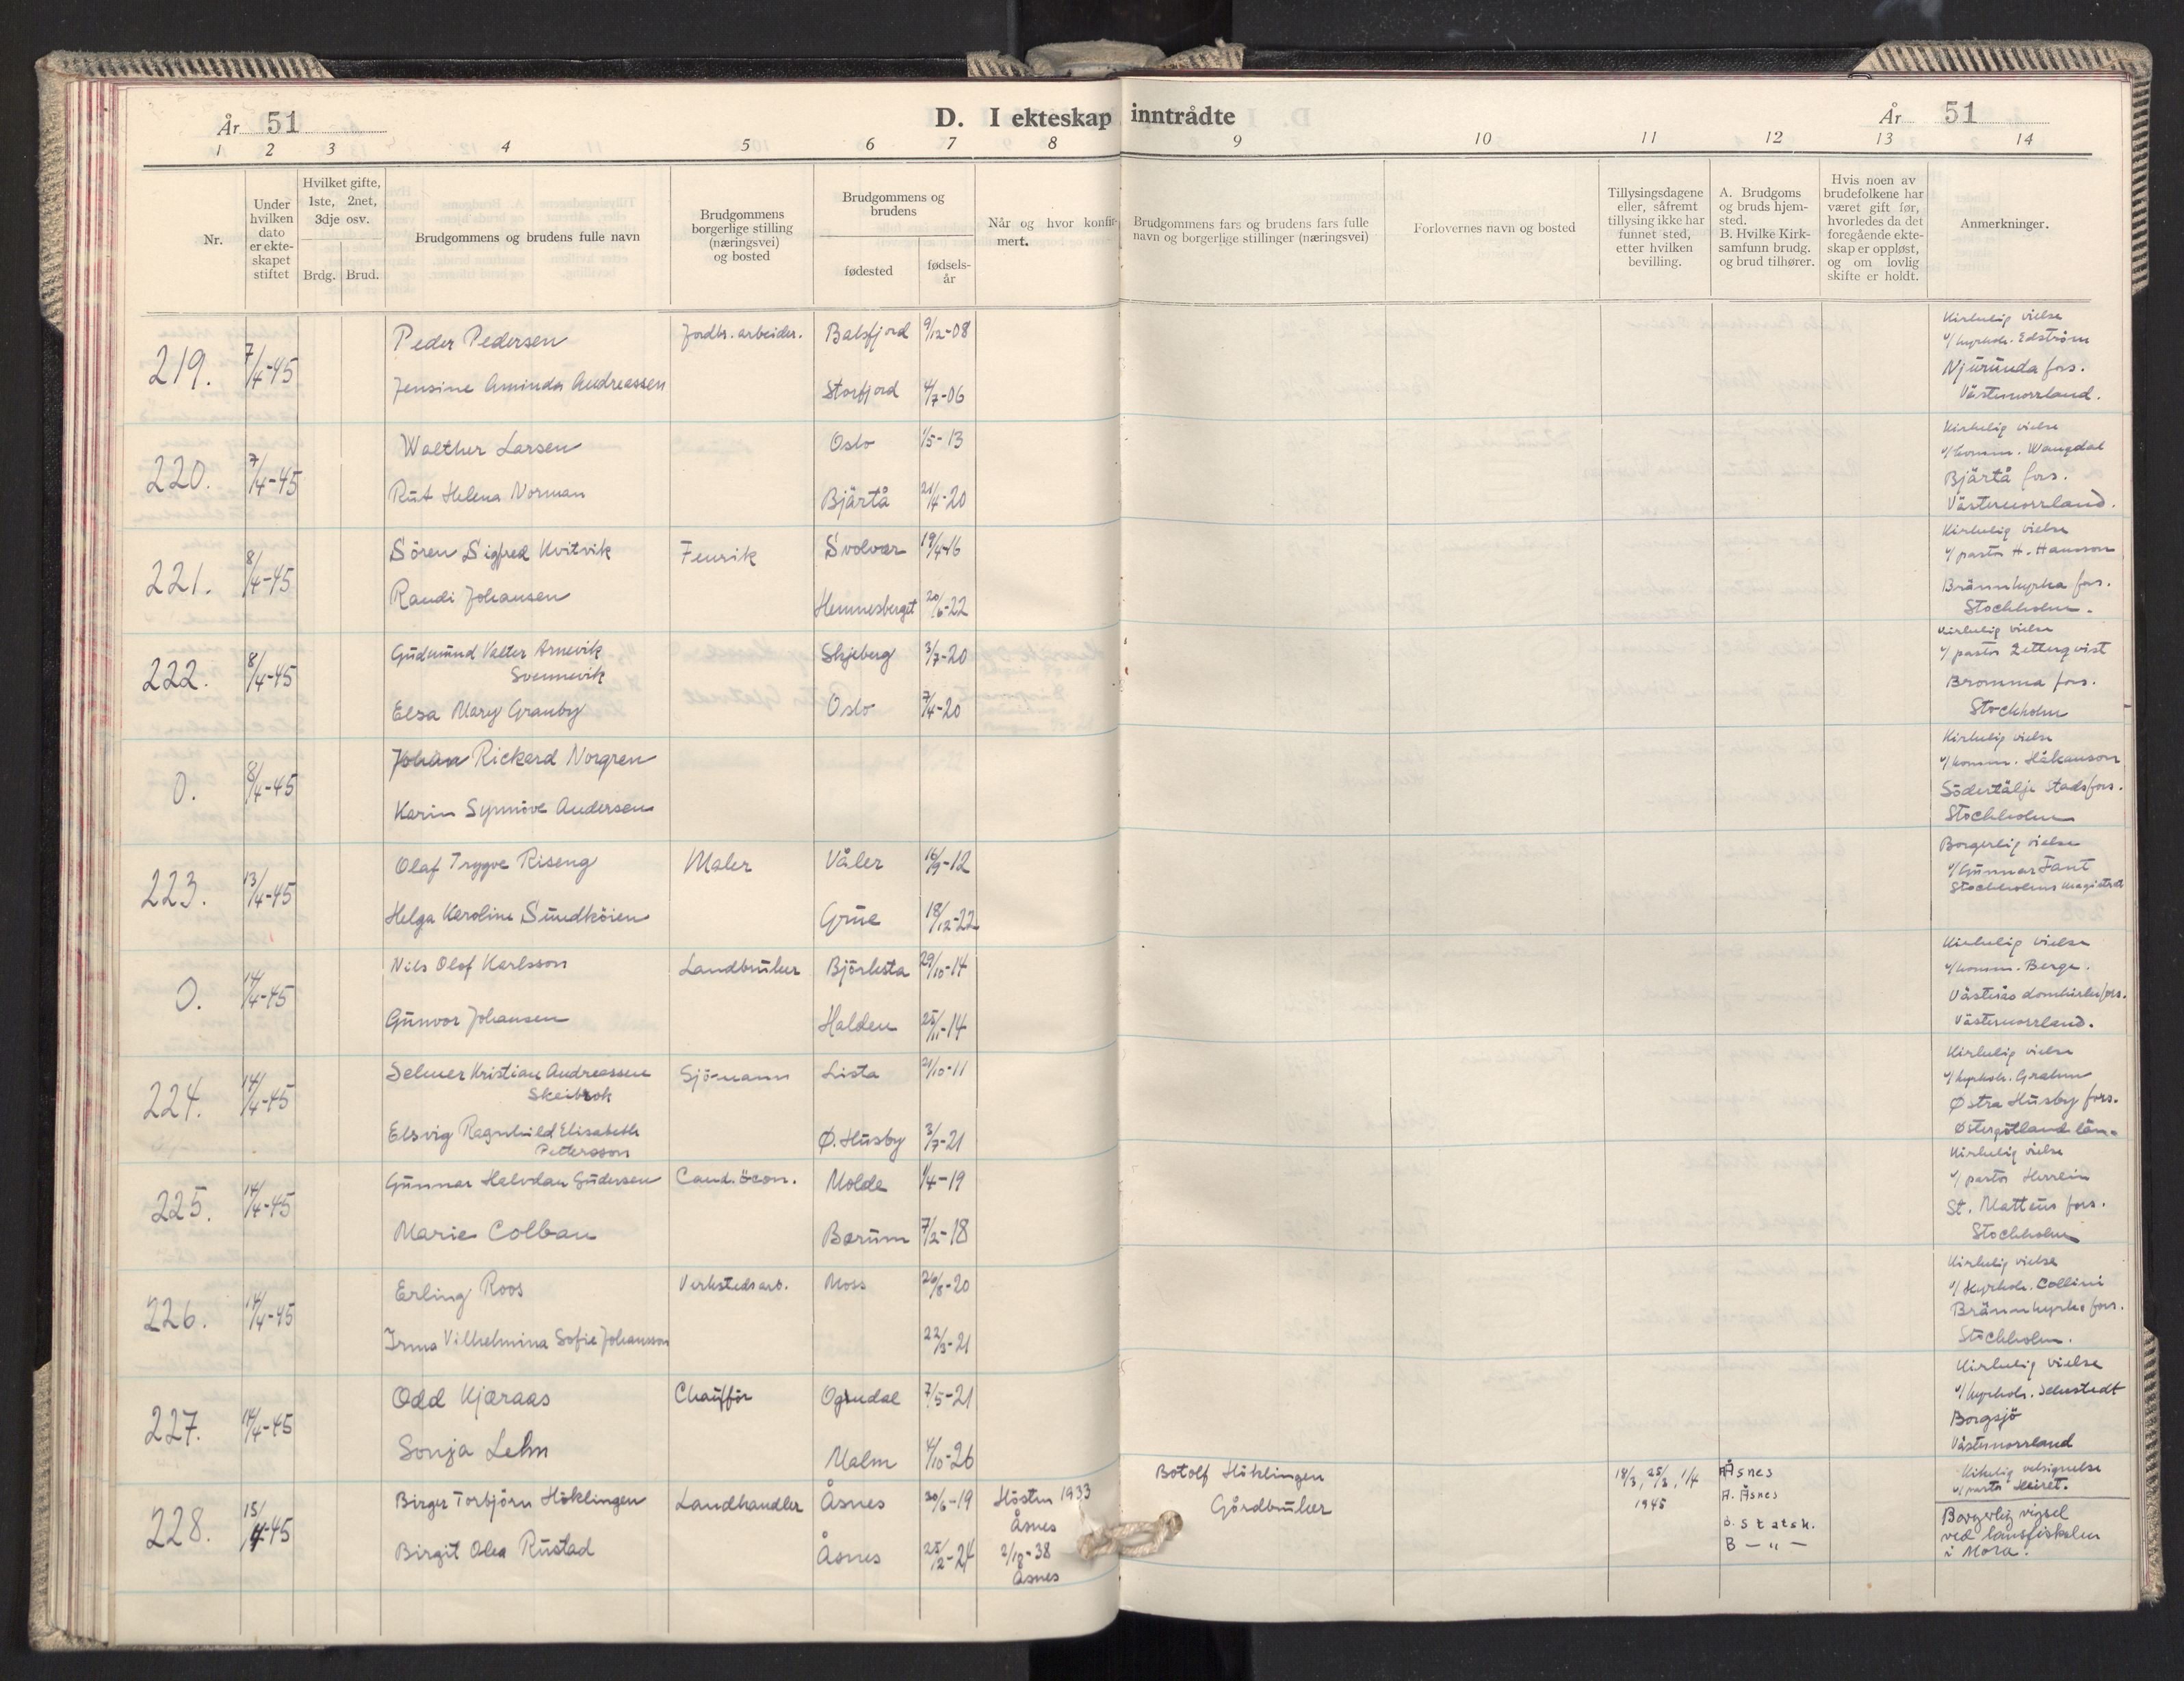 År 51
D. I ekteskap inntrådte
År 51
1 2 3 4 5 6 7 8 9 10 11 12 13 14
Nr.
Under hvilken dato er ekteskapet stiftet
Hvilket gifte, 1ste, 2net, 3dje osv.
Brdg. Brud.
Brudgommens og brudens fulle navn
Brudgommens borgerlige stilling (næringsvei) og bosted
Brudgommens og brudens
fødested
fødsels-år
Når og hvor konfirmert.
Brudgommens fars og brudens fars fulle navn og borgerlige stillinger (næringsvei)
Forlovernes navn og bosted
Tillysingsdagene eller, såfremt tillysing ikke har funnet sted, etter hvilken bevilling.
A. Brudgoms og bruds hjemsted.
B. Hvilke Kirkesamfunn brudg. og brud tilhører.
Hvis noen av brudefolkene har været gift før, hvorledes da det foregående ekteskap er oppløst, og om lovlig skifte er holdt.
Anmerkninger.
219. 7/4-45 Peder Pedersen Jordbr. arbeider. Balsfjord 9/12-08
Jensine Aminda Andreassen Storfjord 4/7-06
Kirkelig vielse
v/ kyrkoh. Edström
Njurunda fors.
Västernorrland.
220. 7/4-45 Walther Larsen Oslo 1/5-13
Rut Helena Norman Bjärtå 21/4-20
Kirkelig vielse
v/ komm. Wangdal
Bjärtå fors.
Västernorrland.
221. 8/4-45 Sören Sigfred Kvitvik Fenrik Svolvær 19/4-16
Randi Johansen Hemnesberget 20/6-22
Kirkelig vielse
v/ pastor H. Hansson
Brännkyrka fors.
Stockholm.
222. 8/4-45 Gudmund Valter Arnevik Svennevik Skjeberg 3/7-20
Elsa Mary Granby Oslo 7/4-20
Kirkelig vielse
v/ pastor Zetterqvist
Bromma fors.
Stockholm
0. 8/4-45 Johan Rickard Norgren
Karin Synnöve Andersen
Kirkelig vielse
v/ komm. Håkanson
Södertälje Stadsfors.
Stockholm
223. 13/4-45 Olaf Trygve Riseng Maler Våler 16/9-12
Helga Karoline Sundköien Grue 18/12-22
Borgerlig vielse
v/ Gunnar Fant
Stockholms Magistrat
0. 14/4-45 Nils Olof Karlsson Landbruker Björksta 29/10-14
Gunvor Johansen Halden 25/11-14
Kirkelig vielse
v/ komm. Berge.
Västerås domkirkefors.
Västernorrland.
224. 14/4-45 Selmer Kristian Andreassen Skeibrok Sjömann Lista 21/10-11
Elsvig Ragnhild Elisabeth Pettersson Ø. Husby 3/7-21
Kirkelig vielse
v/ kyrkoh. Grahm
Østra Husby fors.
Østergötlands län.
225. 14/4-45 Gunnar Halvdan Gudersen Cand. öcon. Molde 1/4-19
Marie Colban Bærum 7/2-18
Kirkelig vielse
v/ pastor Herrlin
St. Matteus fors.
Stockholm
226. 14/4-45 Erling Roos Verkstedsarb. Moss 26/8-20
Irma Vilhelmina Sofie Johansson 22/3-21
Kirkelig vielse
v/ Kyrkoh. Collini
Brännkyrka fors.
Stockholm.
227. 14/4-45 Odd Kjæraas Chauffør Ogndal 7/5-21
Sonja Lehn Malm 4/10-26
Kirkelig vielse
v/ kyrkoh. Sehlstedt
Borgsjö
Västernorrland
228. 15/4-45 Birger Torbjörn Höklingen Landhandler Åsnes 30/6-19 Hösten 1933 Åsnes
Botolf Höklingen
Gårdbruker
18/3, 25/3, 1/4 1945
Åsnes
A. Åsnes
B. Statsk.
B — " —
Birgit Olea Rustad Åsnes 25/2-24 2/10-38 Åsnes
Kirkelig velsignelse
v/ pastor Heiret.
Borgerlig vigsel
ved landsfiskalen
i Mora.